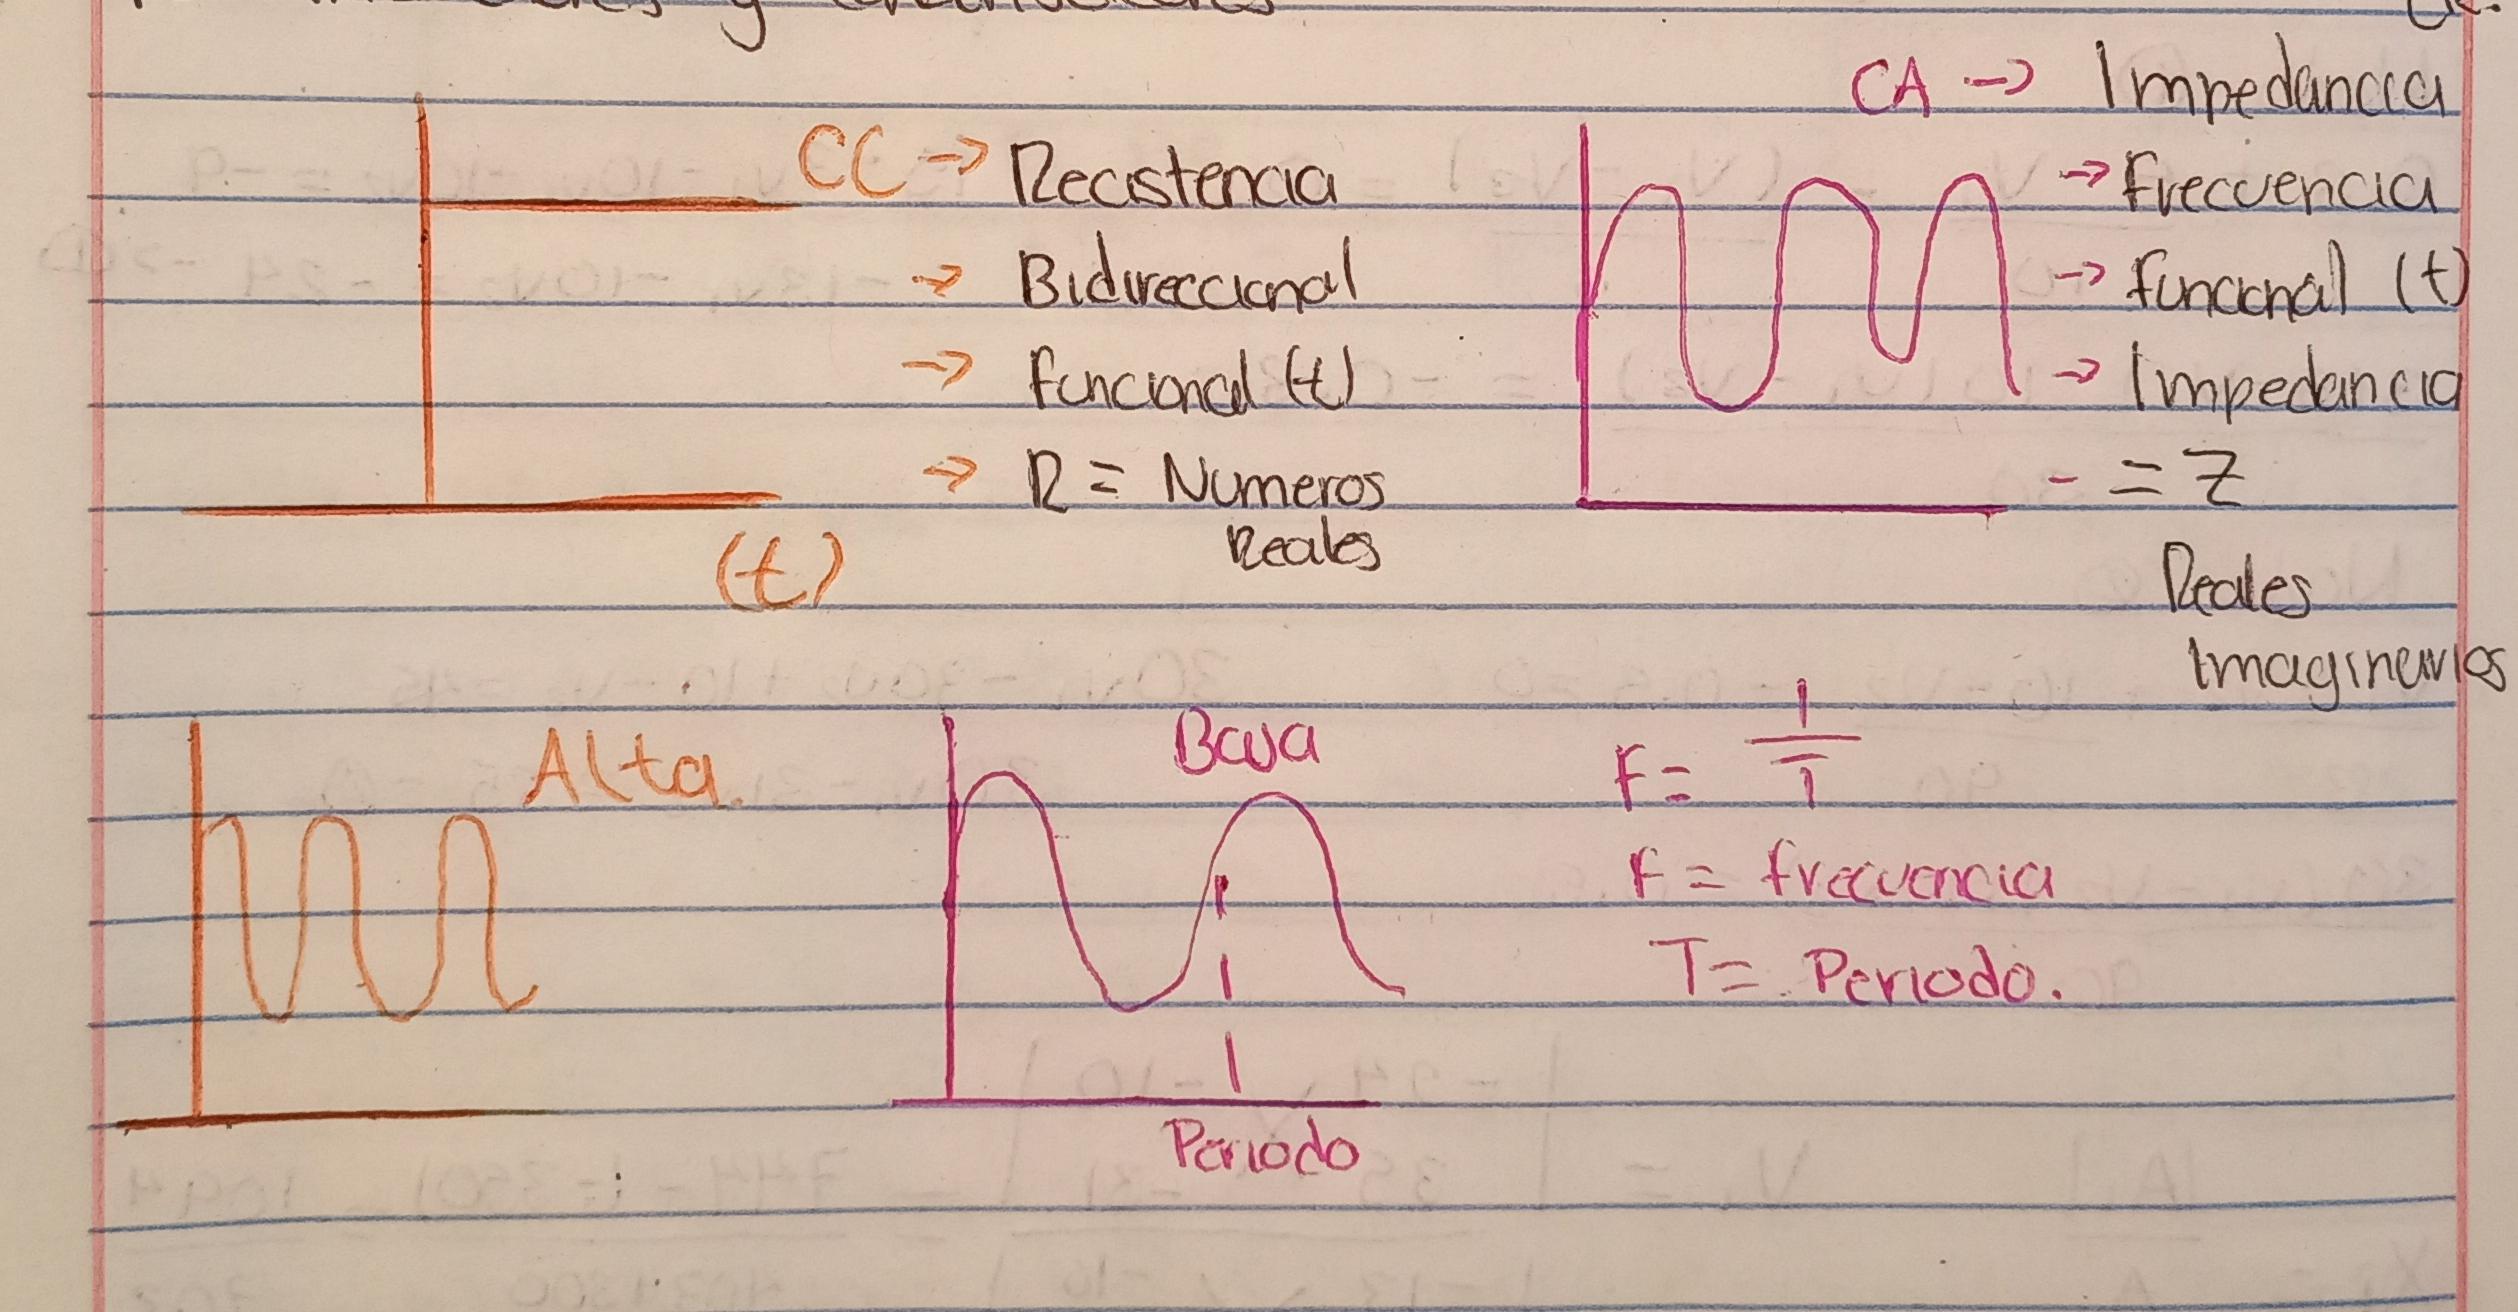 y
CC → Recistencia
→ Bidireccional
→ funcional (t)
→ R = Numeros
Reales
(t)
CA → Impedancia
→ frecuencia
→ funcional (t)
→ Impedancia
- = Z
Reales
Imaginarios
Alta.
Baja
Periodo
F = 1/T
F = frecuencia
T = Periodo.